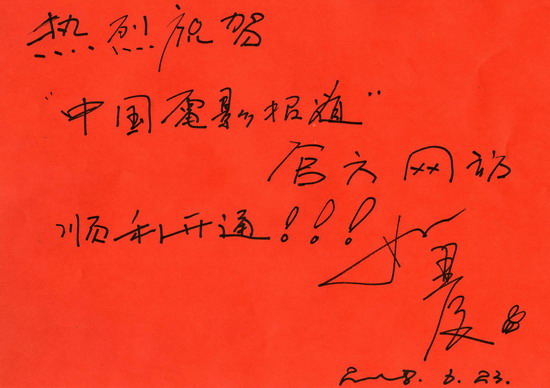 热烈祝贺
“中国電影报道”
官方网站
顺利开通！！！
2008.6.23.